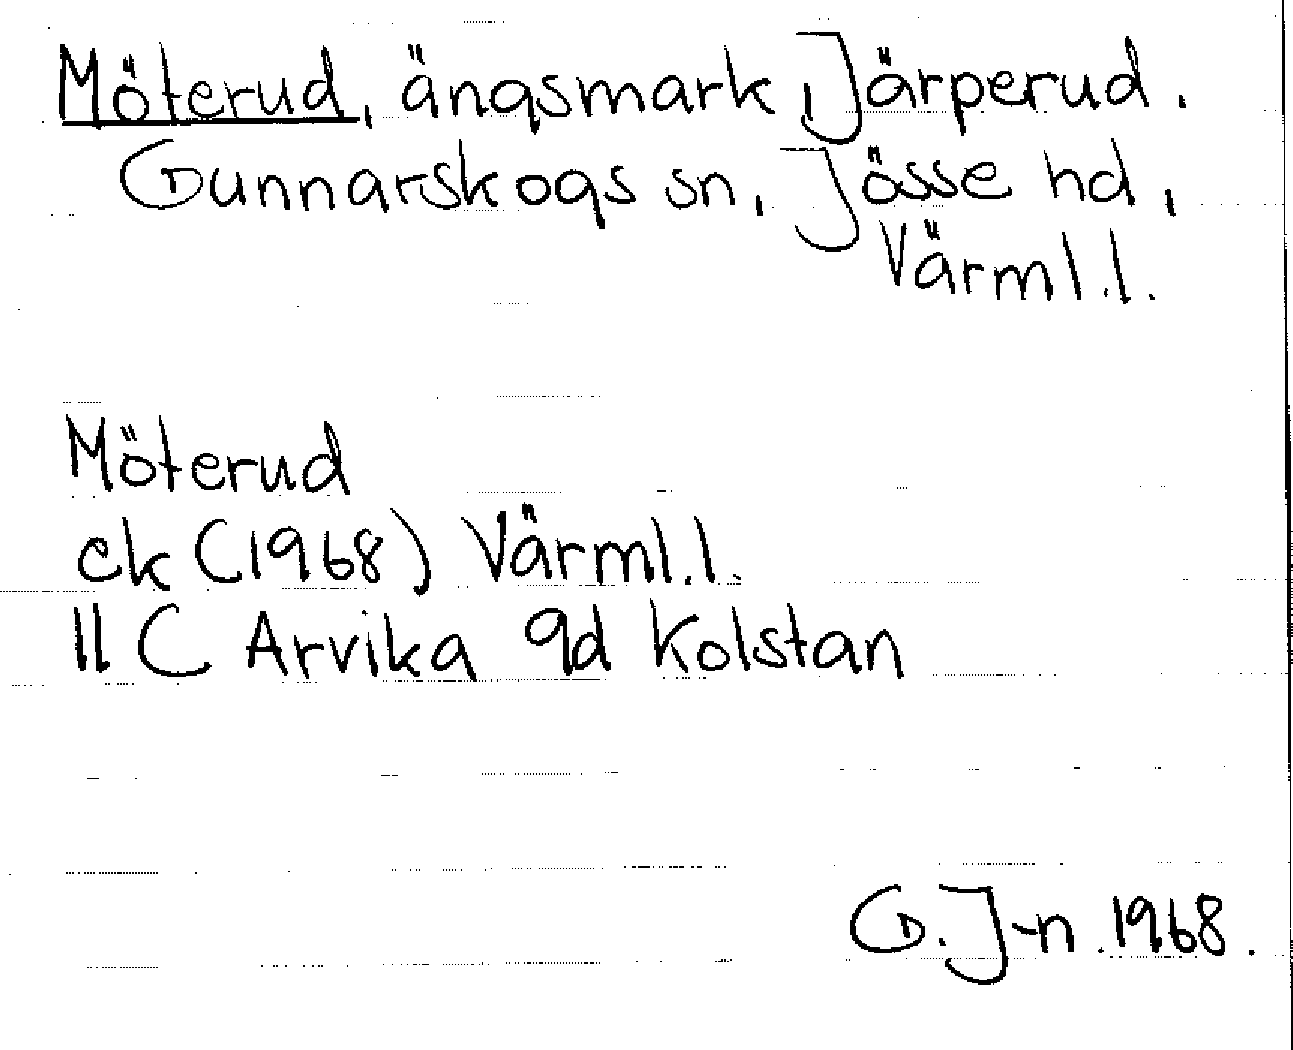 Möterud, ängsmark, Järperud.
Gunnarskogs sn, Jösse hd,
Värml.l.
Möterud
ek (1968) Värml.l.
11 C Arvika 9d Kolstan
G. J-n. 1968.